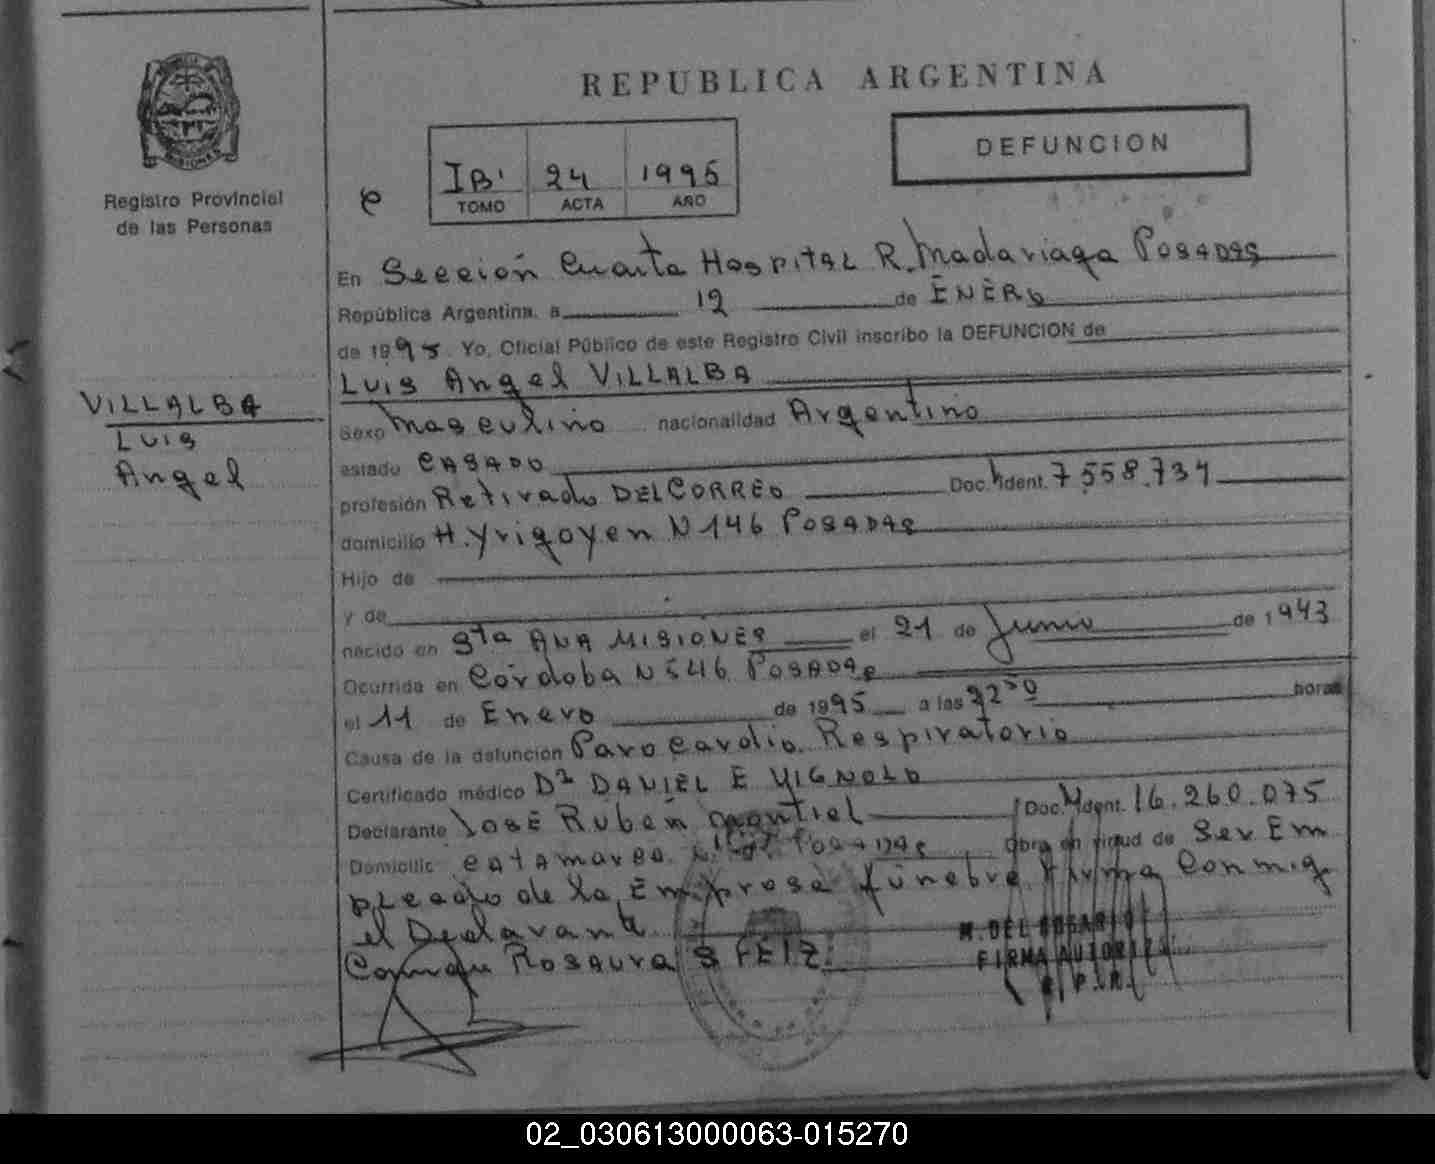 REPUBLICA ARGENTINA
DEFUNCION
MISIONES
Registro Provincial
de las Personas
IB' 24 1995
TOMO ACTA AÑO
En Sección Cuarta Hospital R. Madariaga Posadas
República Argentina, a 12 de ENERO
de 1995. Yo, Oficial Público de este Registro Civil inscribo la DEFUNCION de
Luis Angel VILLALBA
VILLALBA
Luis
Angel
Sexo Masculino nacionalidad Argentino
estado CASADO
profesión Retirado DEL CORREO Doc. Ident. 7.558.734
domicilio H. Yrigoyen N 146 POSADAS
Hijo de
y de
nacido en Sta ANA MISIONES el 21 de Junio de 1943
Ocurrida en Córdoba N 546 POSADAS
el 11 de Enero de 1995 a las horas
Causa de la defunción Paro Cardio Respiratorio
Certificado médico Dr DANIEL E VIGNOLO
Declarante José Rubén Montiel Doc. Ident. 16.260.075
Domicilio Catamarca Posadas Obra en virtud de Ser Em
pleado de la Empresa fúnebre. Firma Conmig
el Declarante
Rosaura S FEIZ
M. DEL ROSARIO
FIRMA AUTORIZA
02_030613000063-015270